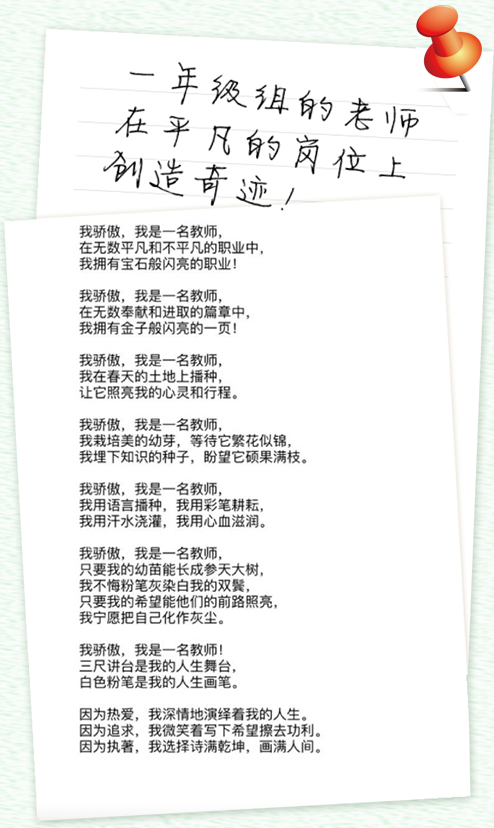 一年级组的老师
在平凡的岗位上
创造奇迹！
我骄傲，我是一名教师，
在无数平凡和不平凡的职业中，
我拥有宝石般闪亮的职业！
我骄傲，我是一名教师，
在无数奉献和进取的篇章中，
我拥有金子般闪亮的一页！
我骄傲，我是一名教师，
我在春天的土地上播种，
让它照亮我的心灵和行程。
我骄傲，我是一名教师，
我栽培美的幼芽，等待它繁花似锦，
我埋下知识的种子，盼望它硕果满枝。
我骄傲，我是一名教师，
我用语言播种，我用彩笔耕耘，
我用汗水浇灌，我用心血滋润。
我骄傲，我是一名教师，
只要我的幼苗能长成参天大树，
我不悔粉笔灰染白我的双鬓，
只要我的希望能他们的前路照亮，
我宁愿把自己化作灰尘。
我骄傲，我是一名教师！
三尺讲台是我的人生舞台，
白色粉笔是我的人生画笔。
因为热爱，我深情地演绎着我的人生。
因为追求，我微笑着写下希望擦去功利。
因为执著，我选择诗满乾坤，画满人间。